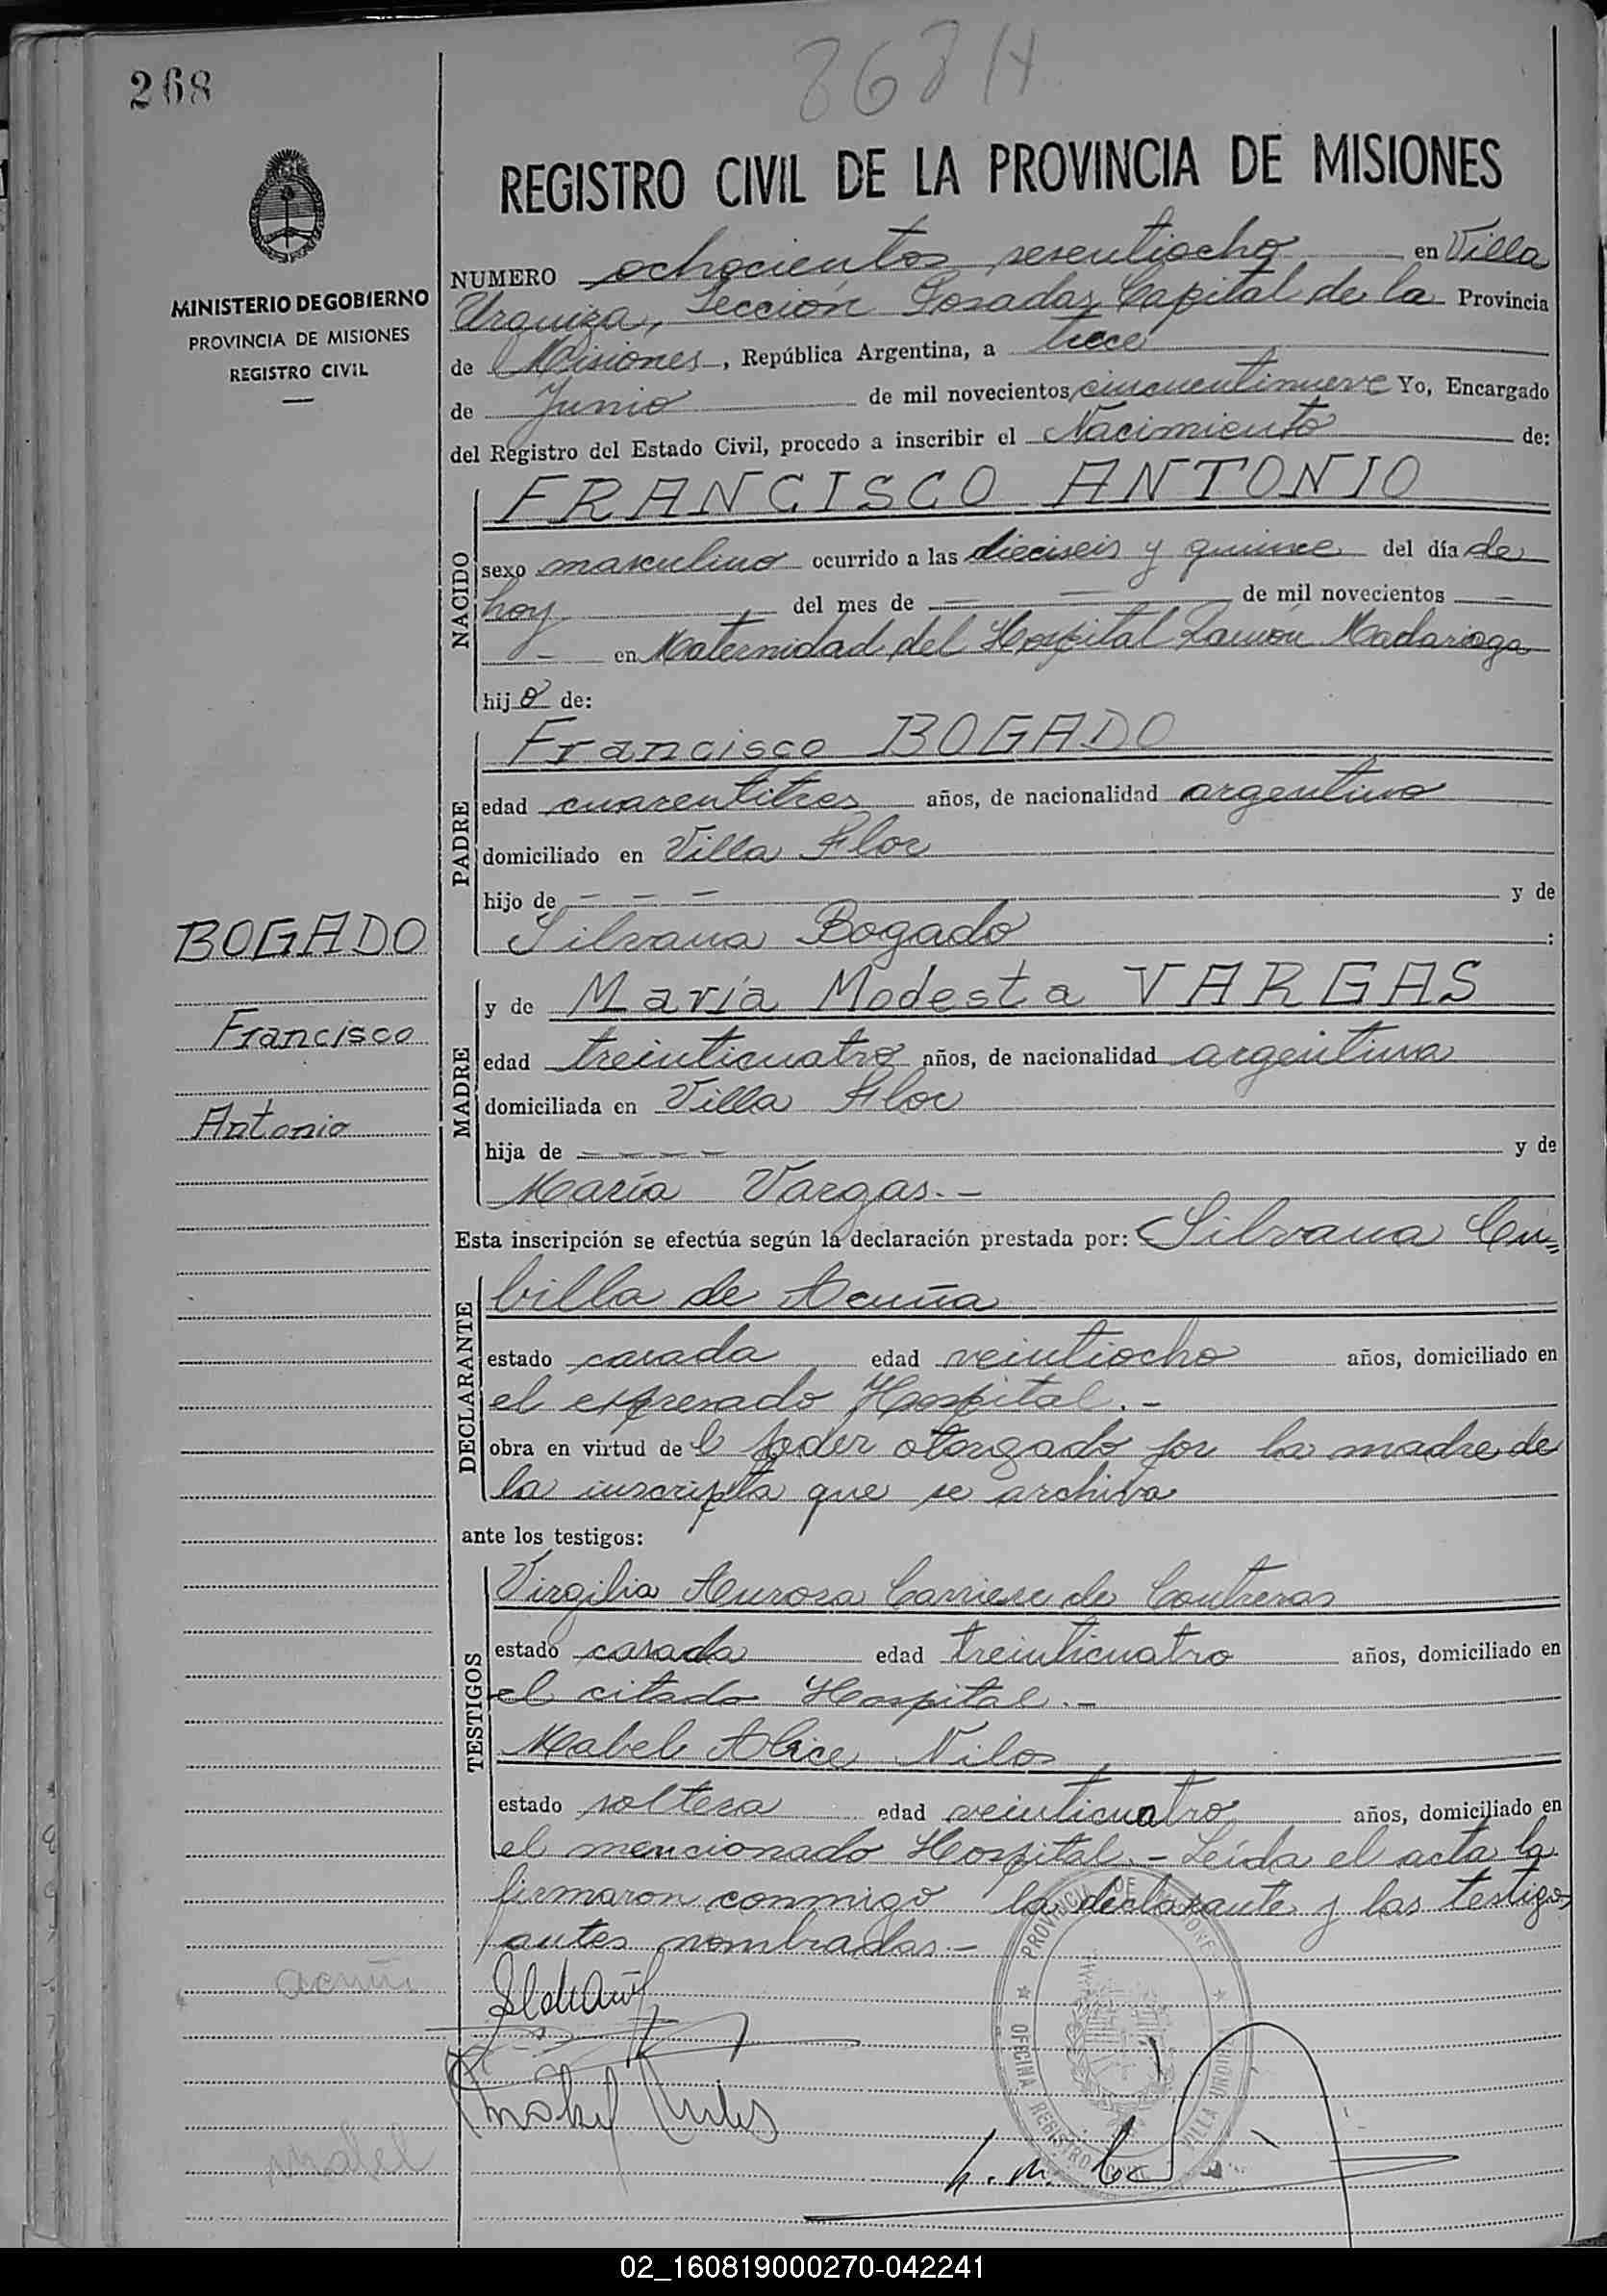 268
868 H
MINISTERIO DE GOBIERNO
PROVINCIA DE MISIONES
REGISTRO CIVIL
REGISTRO CIVIL DE LA PROVINCIA DE MISIONES
NUMERO ochocientos sesentiocho en Villa
Urquiza, Sección Posadas Capital de la Provincia
de Misiones, República Argentina, a trece
de Junio de mil novecientos cincuentinueve Yo, Encargado
del Registro del Estado Civil, procedo a inscribir el Nacimiento de:
NACIDO
FRANCISCO ANTONIO
sexo masculino ocurrido a las dieciseis y quince del día de
hoy del mes de — — de mil novecientos —
— en Maternidad del Hospital Ramón Madariaga
hijo de:
PADRE
Francisco BOGADO
edad cuarentitres años, de nacionalidad argentino
domiciliado en Villa Flor
hijo de — — — y de
Silvana Bogado :
BOGADO
Francisco
Antonio
MADRE
y de María Modesta VARGAS
edad treinticuatro años, de nacionalidad argentina
domiciliada en Villa Flor
hija de — — — — y de
María Vargas.-
Esta inscripción se efectúa según la declaración prestada por: Silvana Cu=
DECLARANTE
billa de Acuña
estado casada edad veintiocho años, domiciliado en
el expresado Hospital.-
obra en virtud del poder otorgado por la madre de
la inscripta que se archiva
ante los testigos:
TESTIGOS
Virgilia Aurora de Contreras
estado casada edad treinticuatro años, domiciliado en
el citado Hospital.-
Mabel Alice Nilos
estado soltera edad veinticuatro años, domiciliado en
el mencionado Hospital.- Leída el acta la
firmaron conmigo la declarante y las testigos
antes nombradas.-
acuña
mabel
PROVINCIA DE MISIONES
OFICINA REGISTRO CIVIL
VILLA
02_160819000270-042241